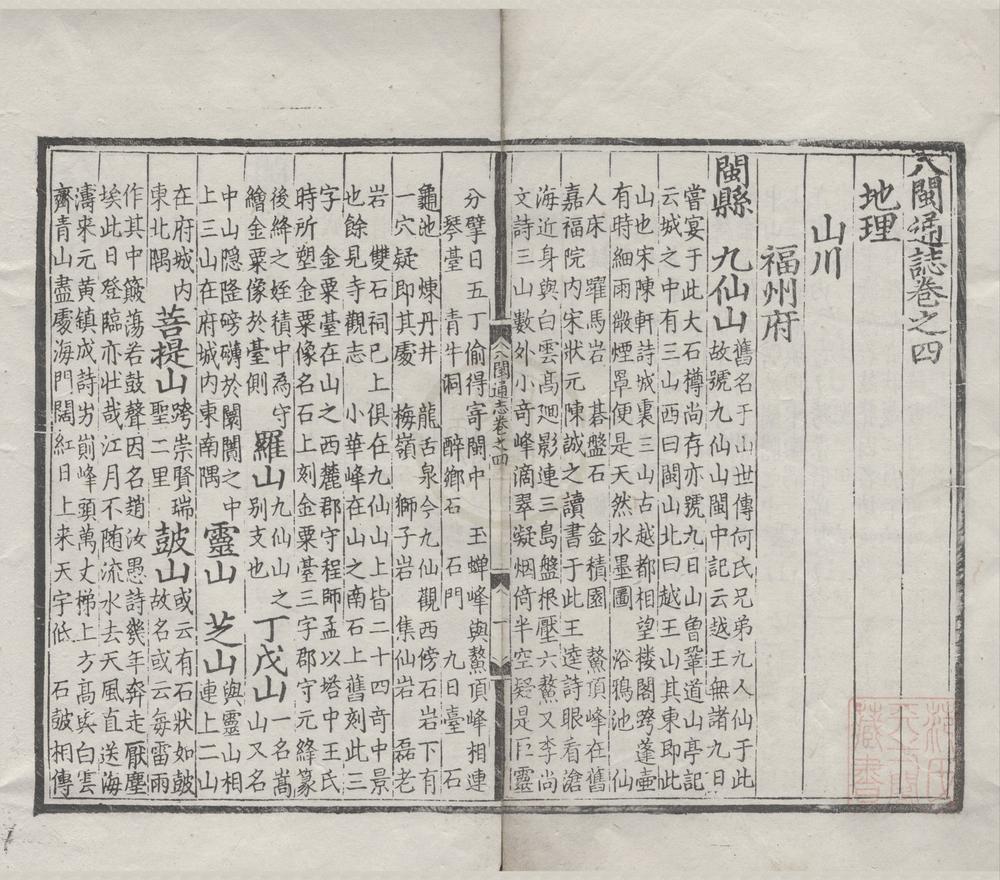 八閩通誌卷之四
地理
山川
福州府
閩縣 九仙山
舊名于山世傳何氏兄弟九人仙于此
故號九仙山閩中記云越王無諸九日
嘗宴于此大石樽尚存亦號九日山曾鞏道山亭記
云城之中有三山西曰閩山北曰越王山其東即此
山也宋陳軒詩城裏三山古越都相望楼閣跨蓬壷
有時細雨微煙罩便是天然水墨圖 浴鴉池 仙
人床 躍馬岩 碁盤石 金積園 鰲頂峰在舊
嘉福院内宋狀元陳誠之讀書于此王逵詩眼看滄
海近身與白雲髙廽影連三島盤根壓六鰲又李尚
文詩三山數外小竒峰滴翠凝烟倚半空疑是巨靈
八閩通志卷之四
一
分擘日五丁偷得寄閩中 玉蟬峰與鰲頂峰相連
琴臺 青牛洞 醉鄉石 石門 九日臺 石
龜池 煉丹井 龍舌泉今九仙觀西傍石岩下有
一穴疑即其處 梅嶺 獅子岩 集仙岩 磊老
岩 雙石祠巳上俱在九仙山上皆二十四竒中景
也餘見寺觀志 小華峰在山之南石上舊刻此三
字 金粟臺在山之西麓郡守程師孟以塔中王氏
時所塑金粟像名石上刻金粟臺三字郡守元絳篆
後絳之姪積中為守
繪金粟像於臺側
羅山
九仙山之
别支也
丁戊山
一名嵩
山又名
中山隐隆磅礴於闤闠之中
上三山在府城内東南隅
靈山 芝山
與靈山相
連上二山
在府城内
東北隅
菩提山
跨崇賢瑞
聖二里
皷山
或云有石狀如皷
故名或云每雷雨
作其中簸蕩若鼓聲因名趙汝愚詩幾年奔走厭塵
埃此日登臨亦壮哉江月不随流水去天風直送海
濤来元黄鎮成詩屴崱峰頭萬丈梯上方髙與白雲
齊青山盡處海門闊紅日上来天宇低 石皷相傳